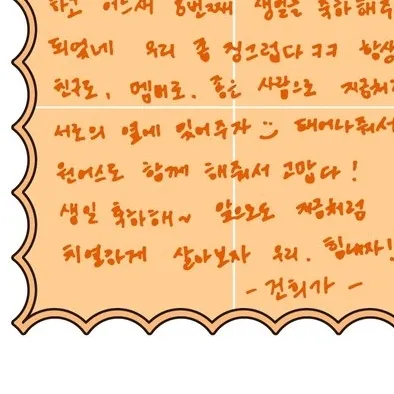 하고 어느새 8번째 생일을 축하해주
되었네 우리 좀 징그럽다ㅋㅋ 항상
친구로, 멤버로, 좋은 사람으로 지금처럼
서로의 옆에 있어주자 :) 태어나줘서
원어스도 함께 해줘서 고맙다!
생일 축하해~ 앞으로도 지금처럼
치열하게 살아보자 우리. 힘내자!
- 건희가 -